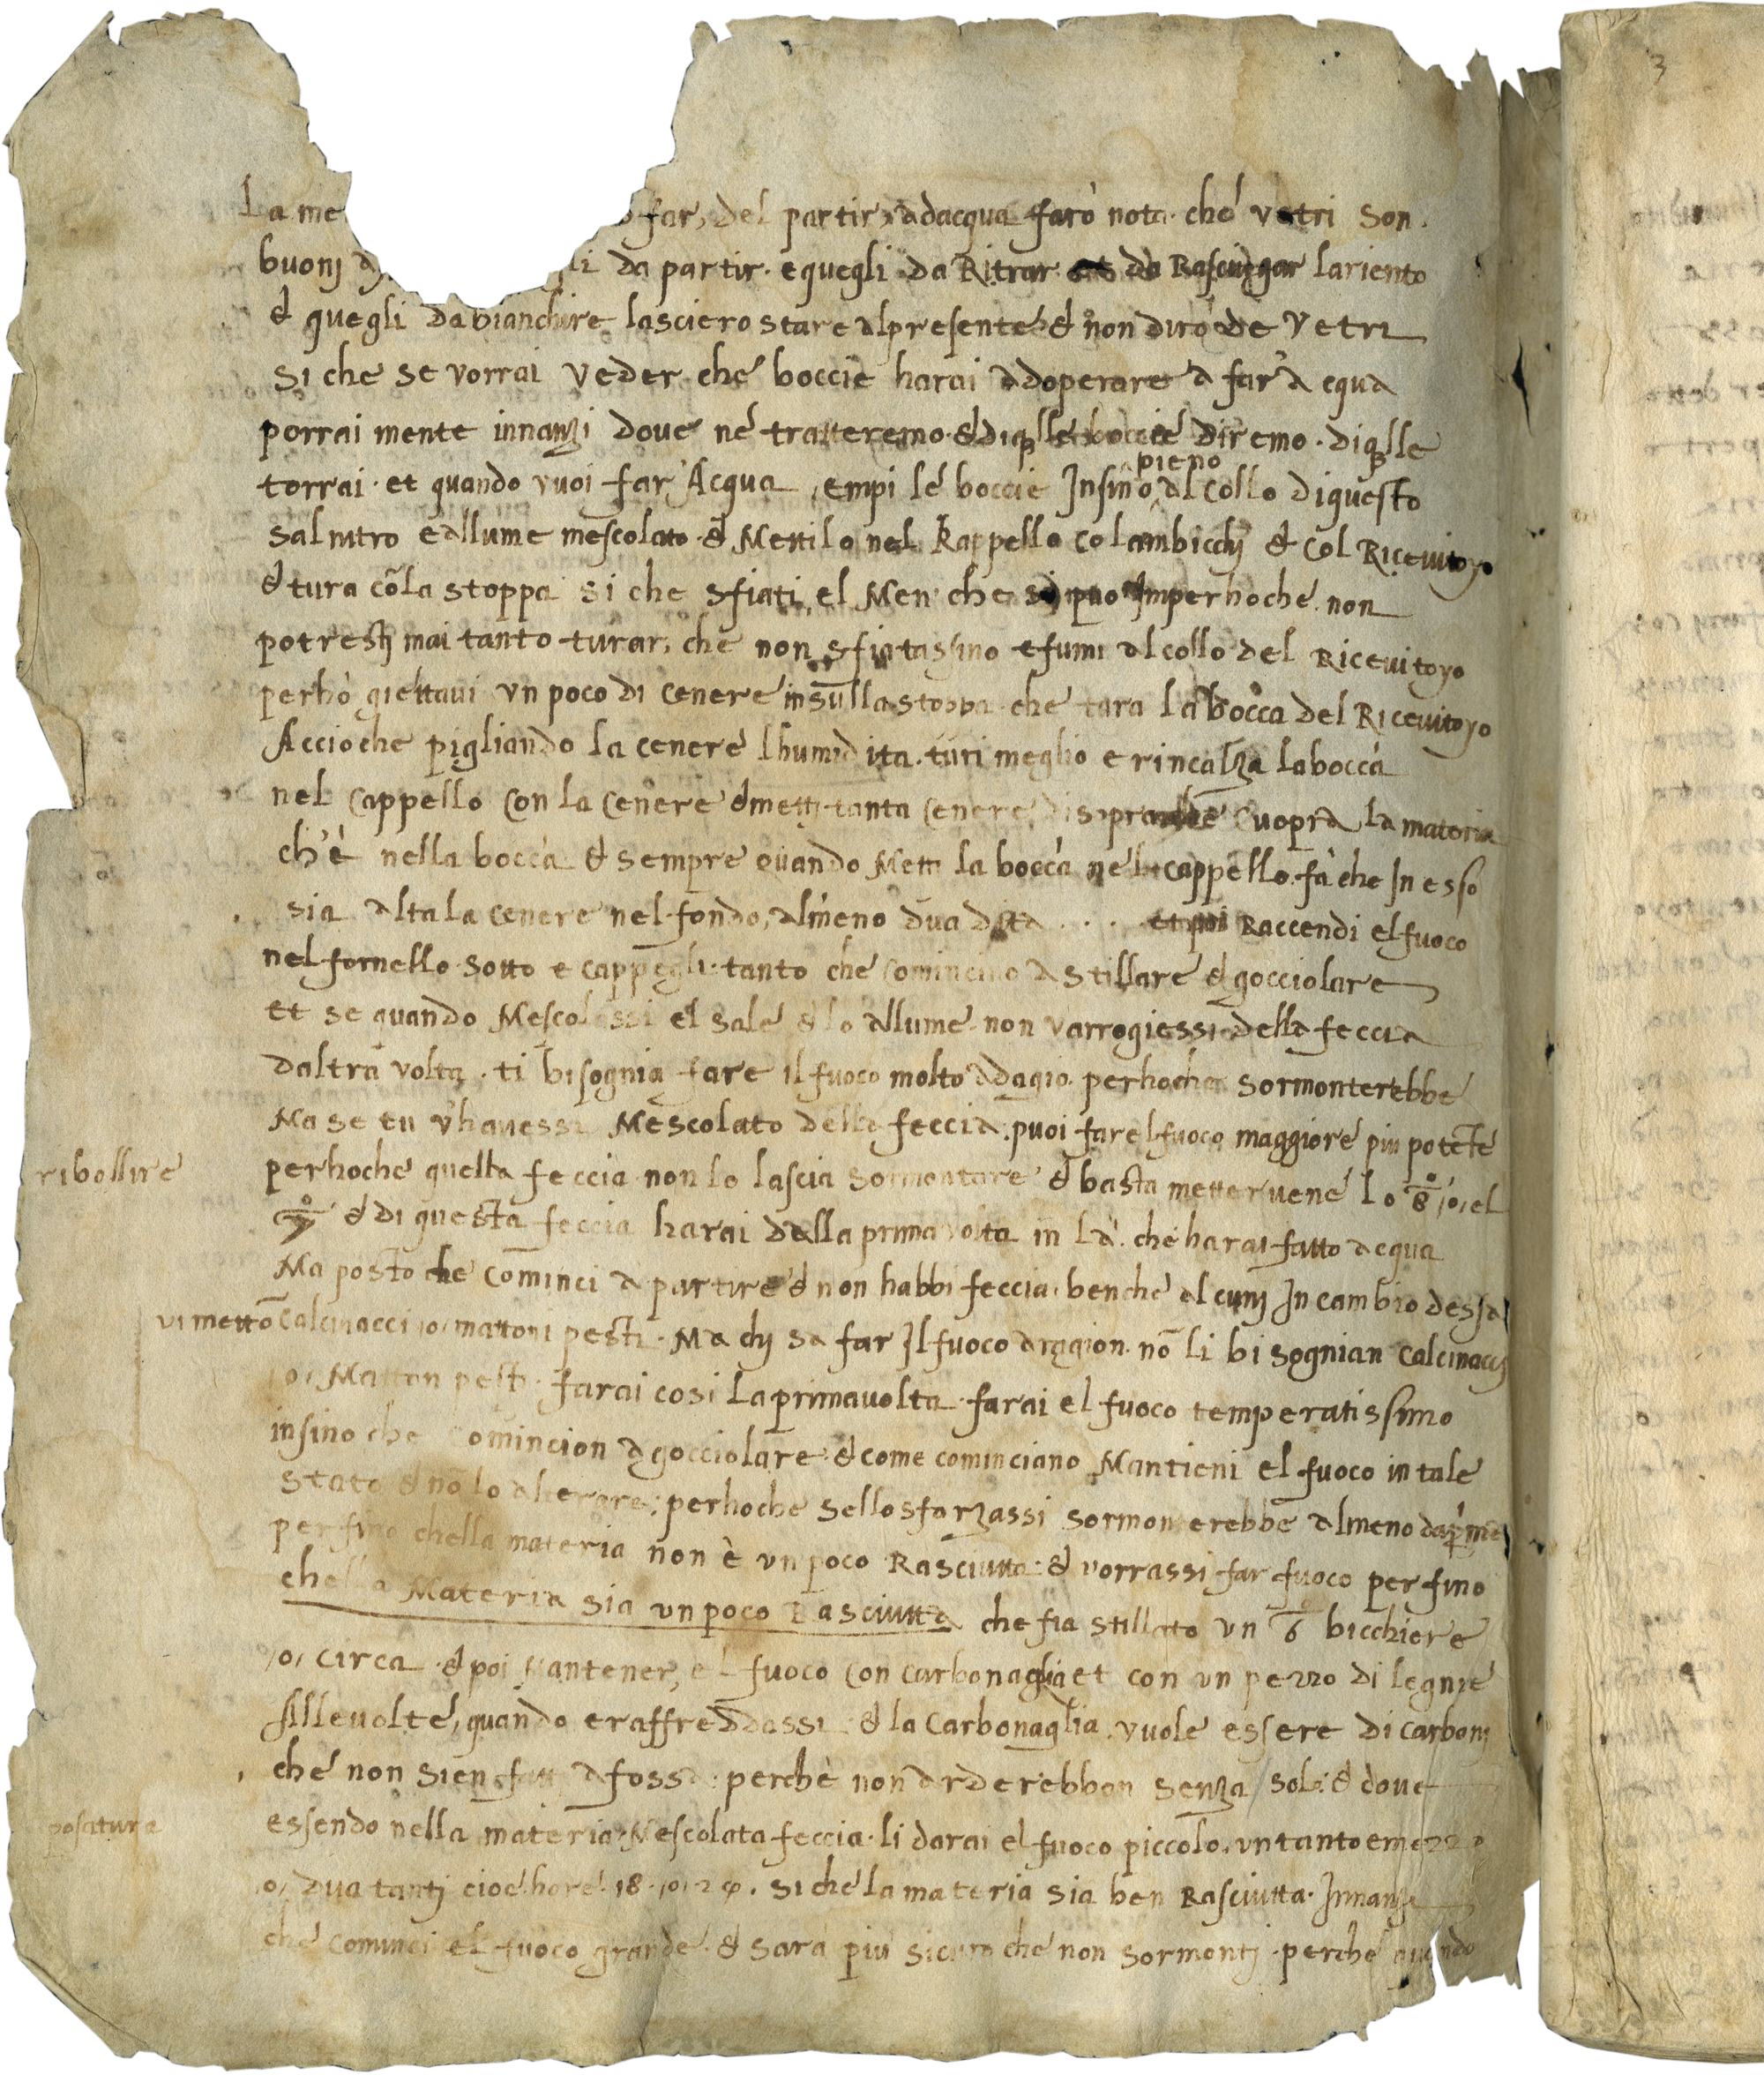 3
La me far, del partir, adacqua farò nota che vetri son
buonj da partir e quegli da Ritrar da Rasciugar lariento
& quegli da bianchire lasciero stare alpresente & non diro de Vetri
Si che se vorrai veder che boccie harai adoperare a far acqua
porrai mente innanzi dove ne tratteremo & diqlle boccie diremo . diqlle
pieno
torrai . et quando vuoi far Acqua , empi le boccie Insino al collo diquesto
salnitro e allume mescolato & Mettilo nel Kappello colambicchj & col Ricevitoyo
& tura cõla stoppa si che sfiati el Men che si puo Imperhoche non
potrestj mai tanto turar, che non sfiatassino e fumi al collo del Ricevitoyo
perhò giettavi un poco di cenere insulla stoppa che tura la bocca del Ricevitoyo
Accioche pigliando la cenere lhumidita . turi meglio e rincalza la boccia
nel cappello con la cenere & mettj tanta cenere disopra che cuopra la materia
ch'è nella boccia & sempre quando Metti la boccia nel cappello . fa che In esso
sia alta la cenere nel fondo, almeno dua dita . . . et poi Raccendi el fuoco
nel fornello sotto e cappegli tanto che comincino a stillare & gocciolare
et se quando Mescolassi el sale & lo allume non varrogiessi della feccia
daltra volta . ti bisognia fare il fuoco molto adagio perhoche sormonterebbe
Ma se tu vhavessi Mescolato della feccia puoi far el fuoco maggiore piu potẽte
ribollire
perhoche quella feccia non lo lascia sormontare & basta mettervene lo 8° ,o, el
& di questa feccia harai dalla prima volta in là che harai fatto acqua
Ma posto che cominci a partire & non habbi feccia . benche alcunj In cambio dessa
vi mettõ calcinacci ,o, mattoni pesti . Ma chj sa far Il fuoco aragion . nõ li bisognian calcinaccj
,o, Matton pesti . farai cosi La prima volta . farai el fuoco temperatissimo
insino che comincion a gocciolare & come cominciano Mantieni el fuoco in tale
stato & nõ lo alterare ; perhoche sello sforzassi sormonterebbe almeno
perfino chella materia non è un poco Rasciutta : & vorrassi far fuoco perfino
chella Materia sia un poco Rasciutta che fia stillato un 6 bicchiere
,o, circa & poi Mantener, el fuoco con carbonaglia et con un pezzo di legnie
Allevolte, quando eraffreddassi & la Carbonaglia . vuole essere di carbonj
che non sien fatti a fossa perchè non arderebbon senza sole & dove
posatura
essendo nella materia Mescolata feccia . li darai el fuoco piccolo . un tanto e mezzo
,o, dua tantj cioe hore 18 ,o, 24 . si che la materia sia ben Rasciutta . Innanzi
che cominci el fuoco grande & sara piu sicuro che non sormontj . perche quando